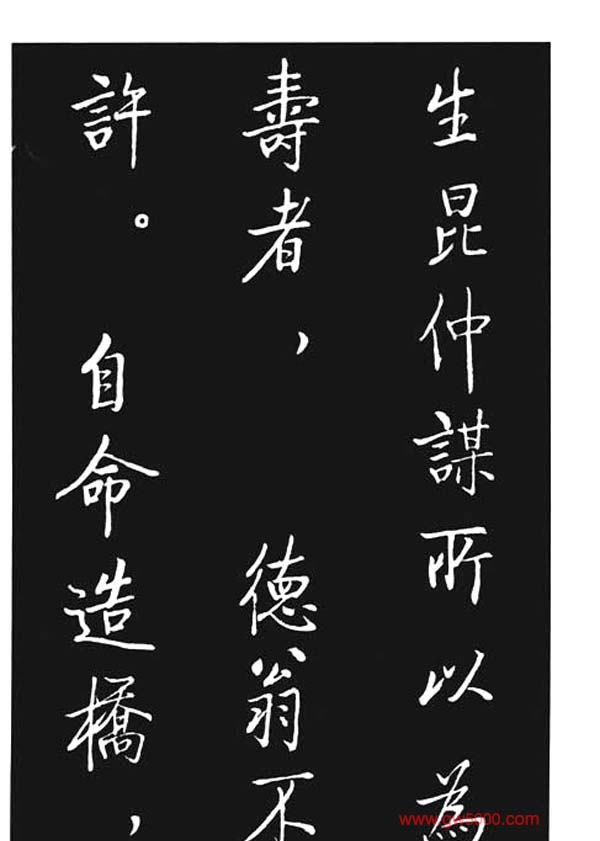 生昆仲謀所以為
壽者，德翁不
許。自命造橋，
www.gw5000.com